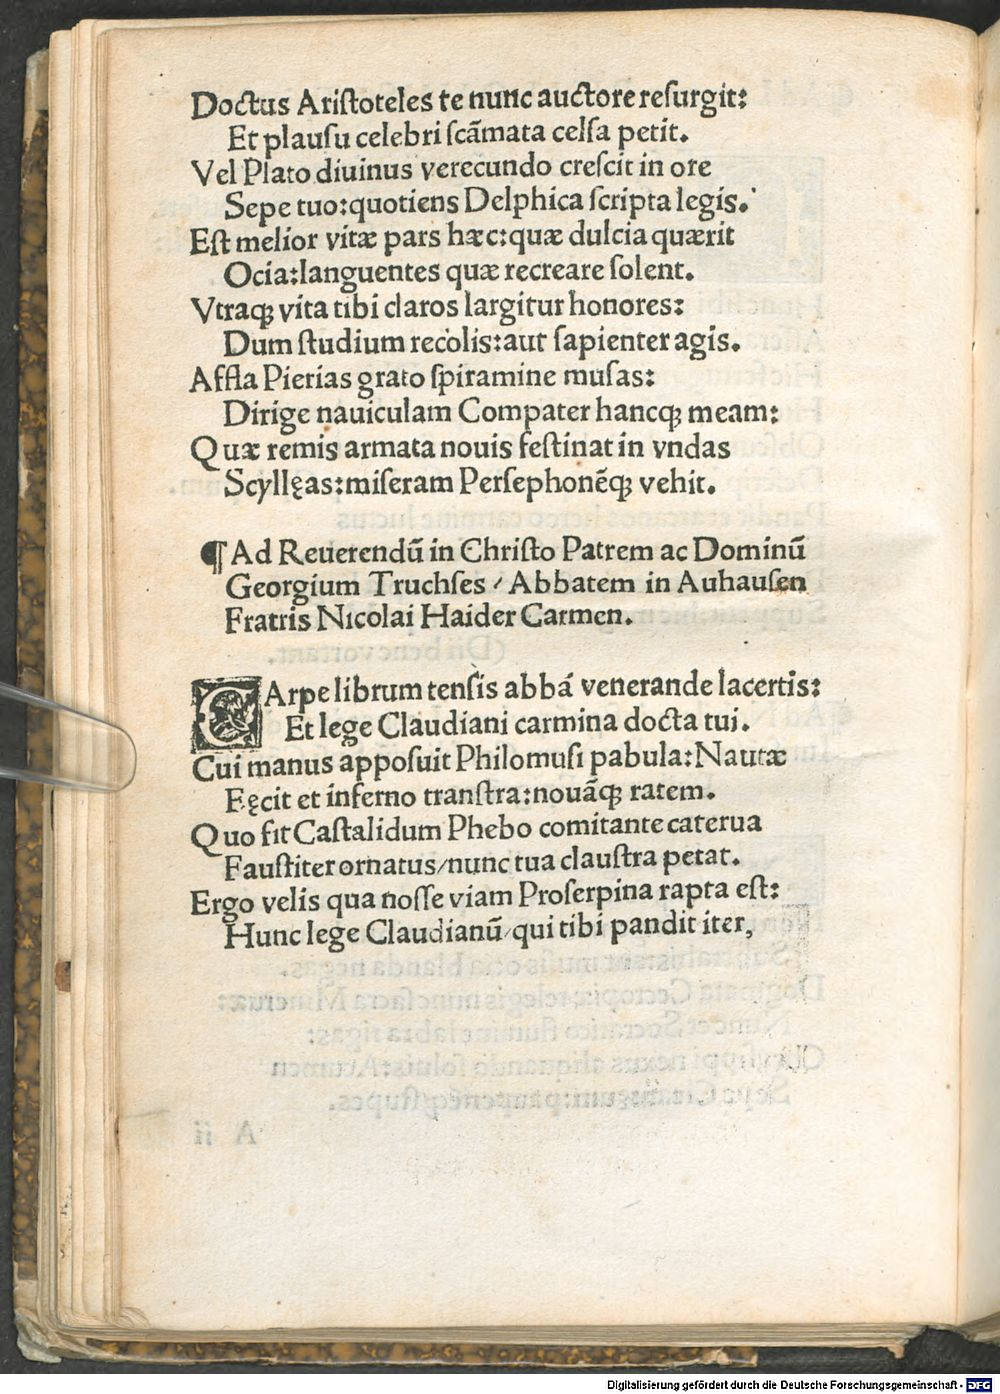 Doctus Ariſtoteles te nunc auctore reſurgit:
Et plauſu celebri ſcãmata celſa petit.
Vel Plato diuinus verecundo creſcit in ore
Sepe tuo: quotiens Delphica ſcripta legis.
Eſt melior vitæ pars hæc: quæ dulcia quærit
Ocia: languentes quæ recreare ſolent.
Vtraqꝫ vita tibi claros largitur honores:
Dum ſtudium recolis: aut ſapienter agis.
Affla Pierias grato ſpiramine muſas:
Dirige nauiculam Compater hancqꝫ meam:
Quæ remis armata nouis feſtinat in vndas
Scyllęas: miſeram Perſephonēqꝫ vehit.
¶ Ad Reuerendū in Chriſto Patrem ac Dominū
Georgium Truchſes / Abbatem in Auhauſen
Fratris Nicolai Haider Carmen.
CArpe librum tenſis abbá venerande lacertis:
Et lege Claudiani carmina docta tui.
Cui manus appoſuit Philomuſi pabula: Nautæ
Fęcit et inferno tranſtra: nouãqꝫ ratem.
Quo fit Caſtalidum Phebo comitante caterua
Fauſtiter ornatus / nunc tua clauſtra petat.
Ergo velis qua noſſe viam Proſerpina rapta eſt:
Hunc lege Claudianū / qui tibi pandit iter,
Digitalisierung gefördert durch die Deutsche Forschungsgemeinschaft - DFG